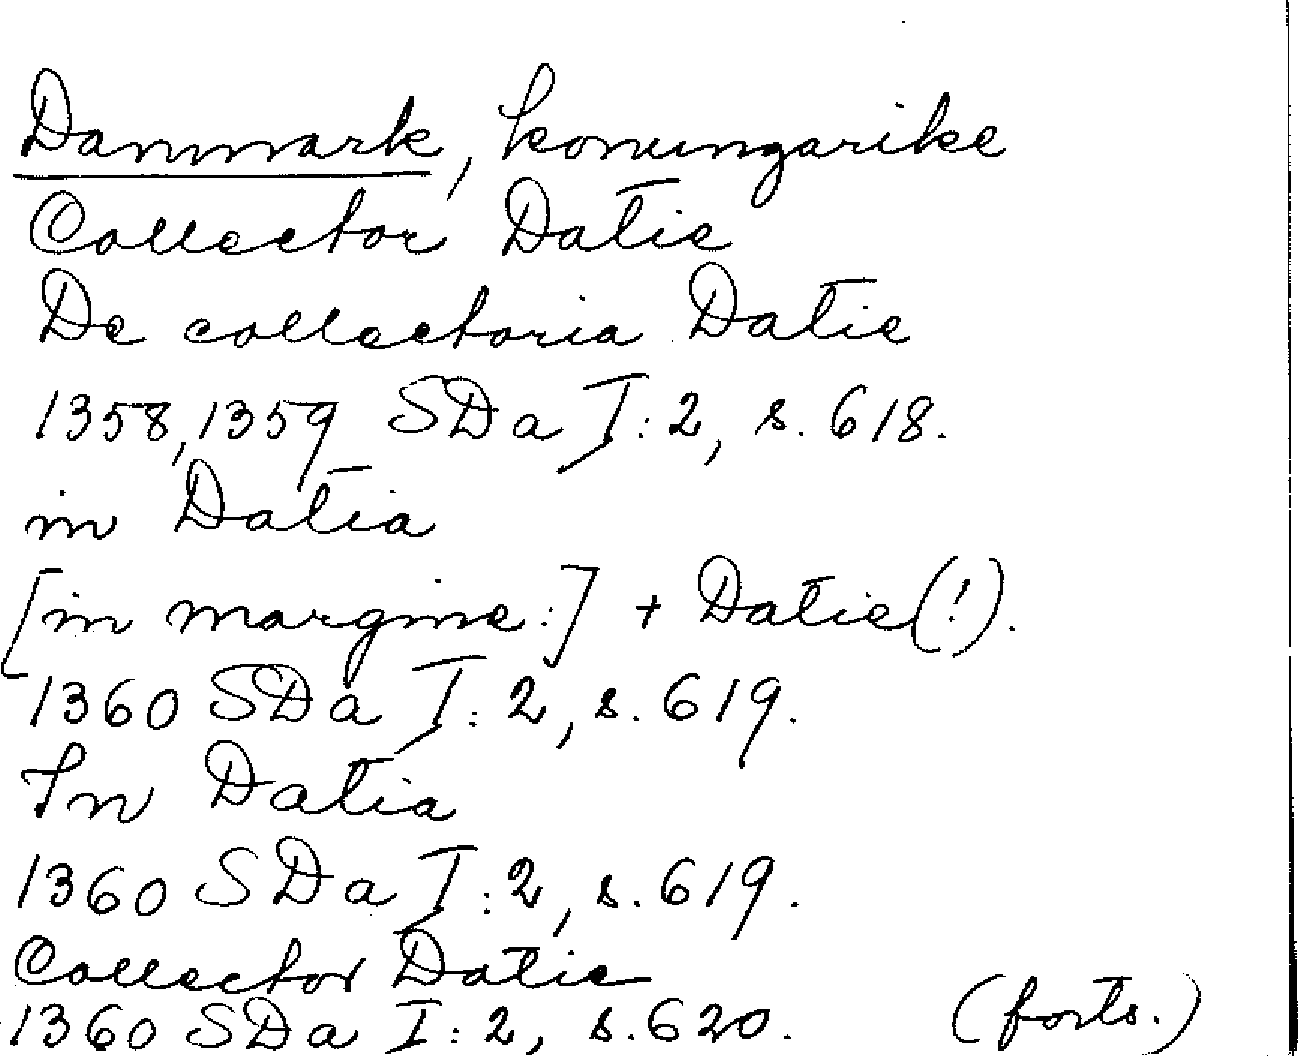 Danmark, konungarike
Collector Datie
De collectoria Datie
1358,1359 SDa I:2, s. 618.
in Datia
[in margine:] + Datie(!).
1360 SDa I:2, s. 619.
In Datia
1360 SDa I:2, s. 619.
Collector Datie
1360 SDa I:2, s. 620. (forts.)